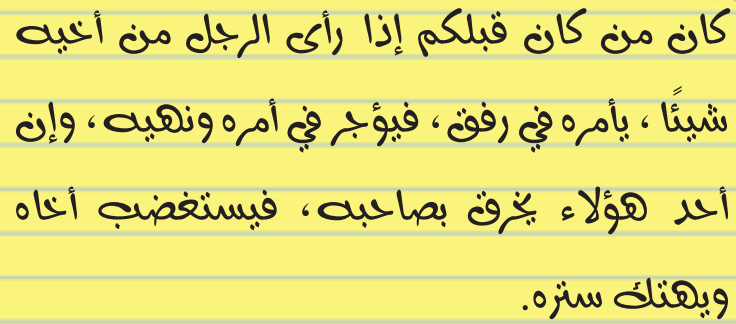 كان من كان قبلكم إذا رأى الرجل من أخيه
شيئًا ، يأمره في رفق ، فيؤجر في أمره ونهيه ، وإن
أحد هؤلاء يخرق بصاحبه ، فيستغضب أخاه
ويهتك ستره.